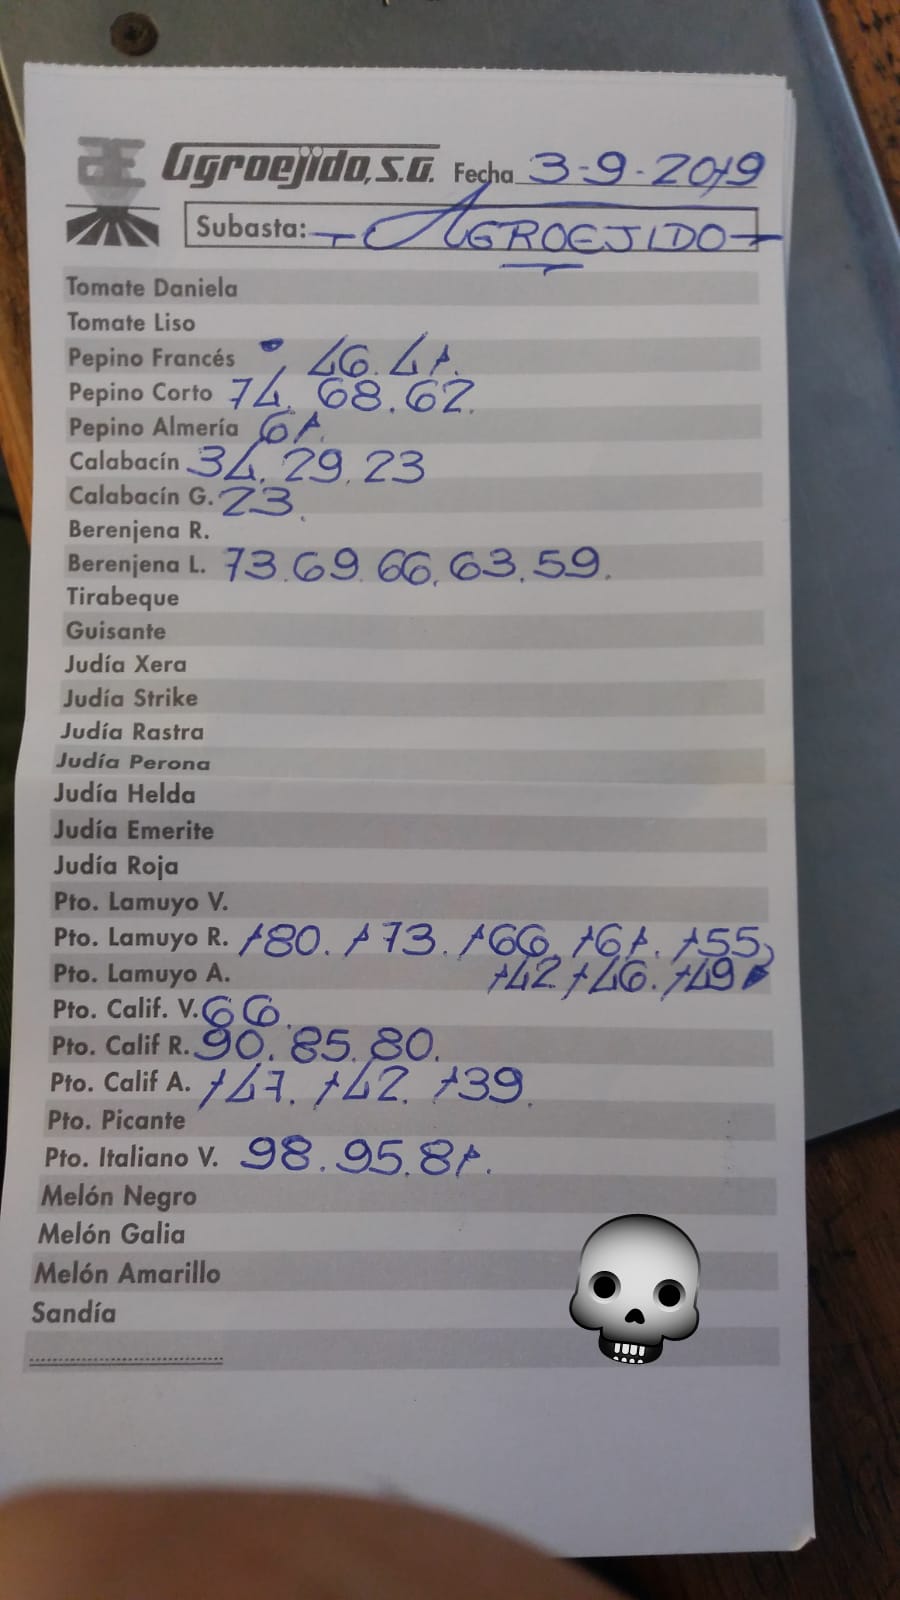 Agroejido, S.A. Fecha 3-9-2019
Subasta: - AGROEJIDO -
Tomate Daniela
Tomate Liso
Pepino Francés 46. 41.
Pepino Corto 74. 68. 62.
Pepino Almería 61.
Calabacín 34. 29. 23
Calabacín G. 23.
Berenjena R.
Berenjena L. 73. 69. 66. 63. 59.
Tirabeque
Guisante
Judía Xera
Judía Strike
Judía Rastra
Judía Perona
Judía Helda
Judía Emerite
Judía Roja
Pto. Lamuyo V.
Pto. Lamuyo R. 180. 173. 166. 161. 155
Pto. Lamuyo A. 142 146. 149
Pto. Calif. V. 66.
Pto. Calif R. 90. 85. 80.
Pto. Calif A. 147. 142. 139.
Pto. Picante
Pto. Italiano V. 98. 95. 81.
Melón Negro
Melón Galia
Melón Amarillo
Sandía